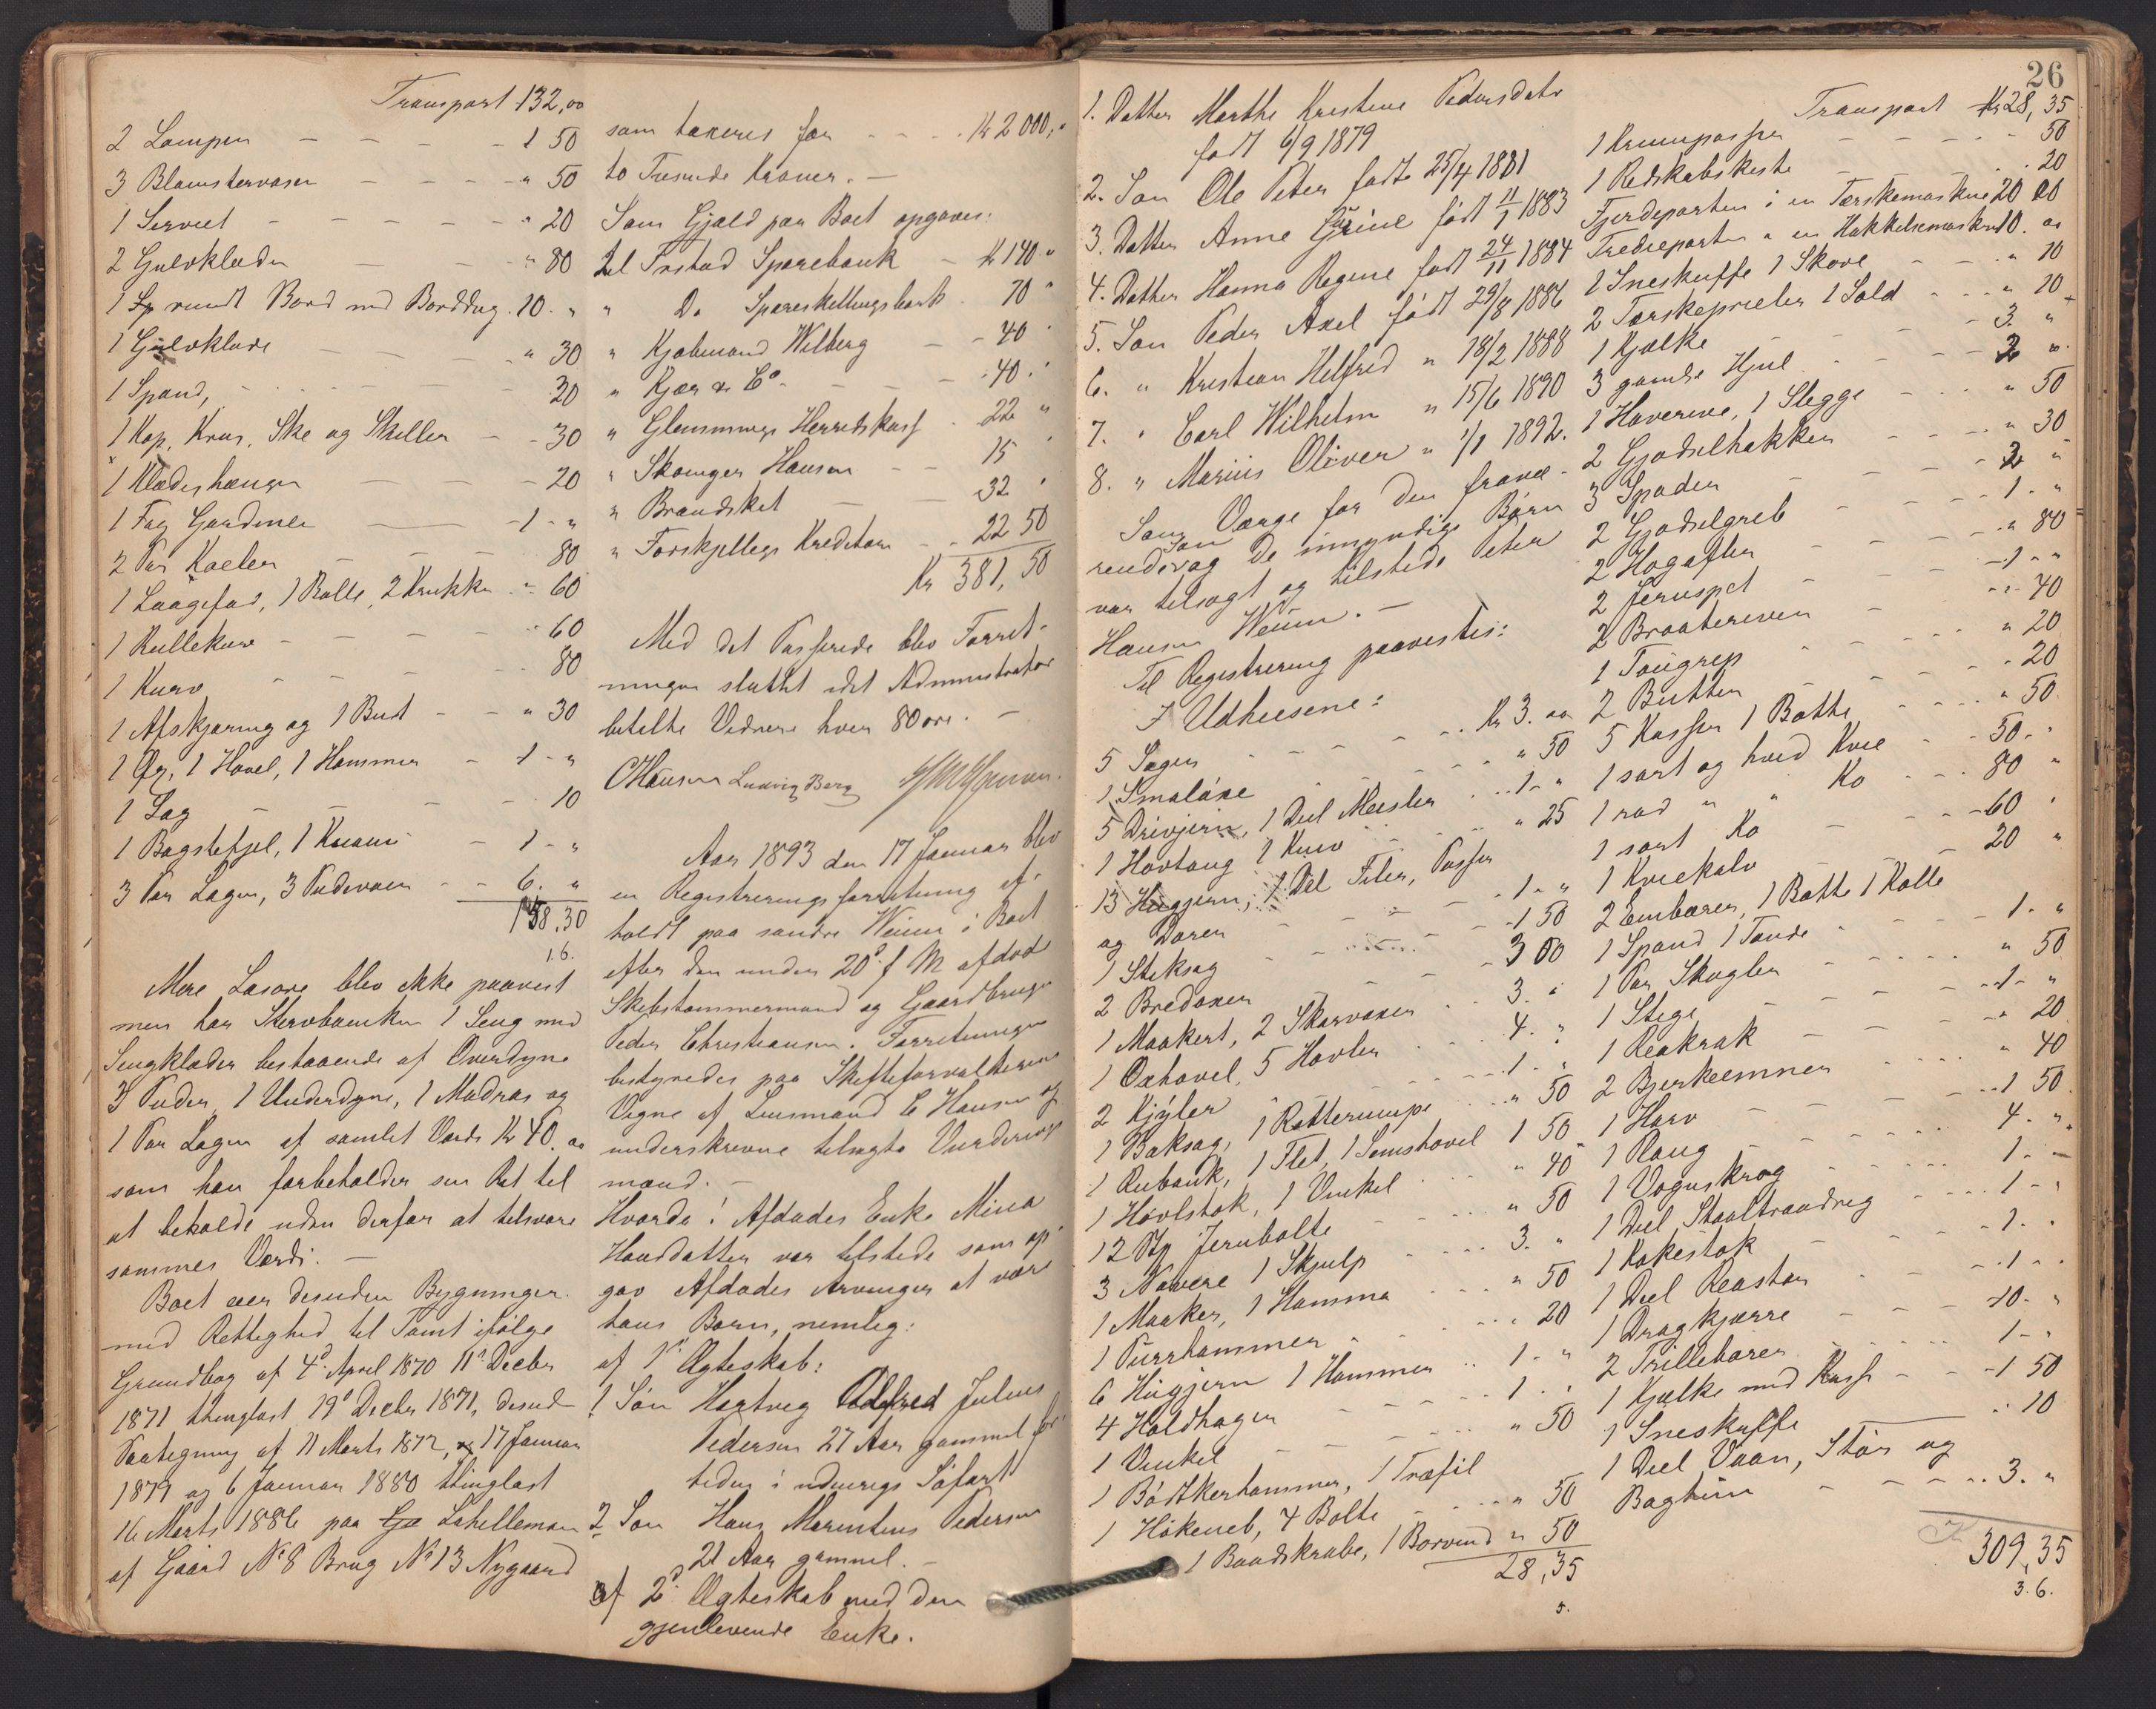 Transport 132,00
2 Lamper - - - - 1 50
3 Blomstervaser - - - - " 50
1 Serviet - - - - - " 20
2 Gulvklæder - - - " 80
1 rundt Bord med Borddug . 10 . "
1 Gulvklæde - - - " 30
1 Spand, - - - - 20
1 Kop, Krus, Ske og Skeller - - 30
1 Klædeshænger - - - 20
1 Fag Gardiner - 1 - "
2 Par - - - 80
1 Laagefad, 1 Bolle, 2 Krukker - " 60
1 Rullekurv - - - - - 60
1 Kurv - - - - - 80
1 Afskjæring og 1 Bust - - " 30
1 Øx, 1 Høvel, 1 Hammer - 1 - "
1 Sag - - - - 10
1 Bagstefjel, 1 - 1 - "
3 Par Lagen, 3 Pudevaar - - 6 . "
158,30
16.
Mere Løsøre blev ikke paavist
men har Stervboenken 1 Seng med
Sengklæder bestaaende af Overdyne
3 Puder, 1 Underdyne, 1 Madras og
1 Par Lagen af samlet Værdi Kr 40.00
som hun forbeholder sin Ret til
at beholde uden derfor at tilsvare
sammes Værdi. —
Boet eier desuden Bygninger
med Rettighed til Tomt ifølge
Grundbog af 4d April 1870 11d Decbr
1871 thinglæst 19d Decbr 1871, desuden
Paategning af 11 Marts 1872, 17 Januar
1879 og 6 Januar 1880 thinglæst
16 Marts 1886 paa Løhelleman
af Gaard No 8 Brug No 13 Nygaard
som taxeres for - - - Kr 2 000,"
to Tusinde Kroner. —
Som Gjæld paa Boet opgaves:
til Sparebank - Kr 140 "
" Do Spareskillingsbank . 70 "
" Kjøbmand Wilberg - - 40 "
" Kjær & Co - - - - 40 . "
" Glemminge Herredskasse . 22 "
" Skomager Hansen - - 15 "
" Brandskat - - 32 "
" Forskjellige Kreditorer - - 22 50
Kr 381, 50
Med det Passerede blev Forret-
ningen sluttet idet Administrator
betalte Vidnerne hver 80 øre. —
C Hansen Ludvig Berg
Aar 1893 den 17 Januar blev
en Registreringsforretning af-
holdt paa søndre Weum i Boet
efter den under 20d f M afdød
Skibstømmermand og Gaardbruger
Peder Christiansen. Forretningen
bestyredes paa Skifteforvalterens
Vegne af Lensmand C Hansen og
underskrevne tilsagte Vurderings
mænd. —
Hvorda! Afdødes Enke Mina
Hansdatter var tilstede som op-
gav Afdødes Arvinger at være
hans Børn, nemlig:
af 1d Ægteskab:
1 Søn Hartvig Adolfred Julius
Pedersen 27 Aar gammel for
tiden i udenrigs Søfart
2 Søn Hans Marentius Pedersen
21 Aar gammel. —
af 2d Ægteskab med den
gjenlevende Enke.
26
1. Datter Marthe Kristine Pedersdatr
født 6/9 1879
2. Søn Ole Peter født 25/4 1881
3. Datter Anne født 11/1 1883
4. Datter Hanna Regine født 24/11 1884
5. Søn Peder Axel født 29/8 1886
6. " Kristian Helfred " 18/2 1888
7. " Carl Wilhelm " 15/6 1890
8. " Marius Oliver " 1/1 1892.
Som Værge for den fravæ-
rende Søn og de umyndige Børn
var tilsagt og tilstede Peter
Hansen Weum. —
Til Registrering paavistes:
I Udhusene:
5 Sager - - - - - Kr 3. 00
1 Smaløxe - - - - - " 50
5 Drivjern, 1 Deel Meisler . . . 1 - "
1 Hovtang 1 Kniv - - - - " 25
13 Hugjern, 1 Del Filer, Passer
og Dorer - - - - 1 - "
1 Stiksag - - - - - 1 50
2 Bredøxer - - - 3 00
1 Maakert, 2 Skarvøxer . . 3. "
1 Oxhøvel, 5 Høvler . . . . 4. "
2 Kjyler - - - - 1 . "
1 Baksag, 1 Rotterumpe . . . " 50
1 Rubank, 1 Flet, 1 Simshøvel 1 50
1 Høvlstok, 1 Vinkel . . . " 40
12 Stk Jernbolte - - - " 50
3 Navere 1 Skjulp - - - 3. "
1 Maaker, 1 Hammer . . . " 50
1 Purrhammer - - - - " 20
6 Hugjern 1 Hammer . . 1 - "
4 Holdhager - - - - 1 . "
1 Vinkel - - - - - - " 50
1 Bødtkerhammer, 1 Træfil
1 Høkeneb, 4 Bolte - - - - " 50
1 Baadskrabe, 1 Borvind " 50
28,35
5.
Transport Kr 28,35
1 Krumpasser - - - - - 50
1 Redskabskiste - - - . 20
Fjerdeparten i en Tærskemaskine 20 00
Tredieparten " en Hakkelsemaskine 10. 00
1 Sneskuffe 1 Skovl - - - " 10
2 Tærskeprieler 1 Sold - - - " 10
1 Kjælke - - - - - - 3. "
3 gamle Hjul - - - - - 2 "
1 Haverive, 1 Slegge - - - " 50
2 Gjødselhakker - - - - " 30
3 Spader - - - - - - 2 "
2 Gjødselgreb - - - - - 1 - "
2 Høgafler - - - - - " 80
2 Jernspet - - - - - 1 - "
2 Braateriver - - - - - " 40
1 Taugrep - - - - - " 20
2 Bøtter - - - - - - 20
5 Kasser 1 Bøtte - - - - " 50
1 sort og hvid Kvie - - 50 . "
1 rød " " Ko - - - 80 "
1 sort Ko - - - - - 60 "
1 Kviekalv - - - - - 20 "
2 Embarer, 1 Bøtte 1 Kolle
1 Spand 1 Tønde - - - - 1 . "
1 Par Skagler - - - - - " 50
1 Stige - - - - - - 1 - "
1 Reakrak - - - - - " 20
2 Bjerkeemner - - - - " 40
1 Harv - - - - - - 1 50
1 Plaug - - - - - - 4. "
1 Vognskrog - - - - - 1. -
1 Deel Staaltraadreg - - - - 1 - "
1 Kakestok - - - - - 1 . "
1 Deel Reastør - - - - - 1 . "
1 Dragkjærre - - - - 10 . "
2 Trillebører - - - - - 1 - "
1 Kjælke med Kasse - - - 1 50
1 Sneskuffe - - - - . . 10
1 Deel Vaan, Stør og
Baghun - - - - . . 3. "
309,35
3.6.